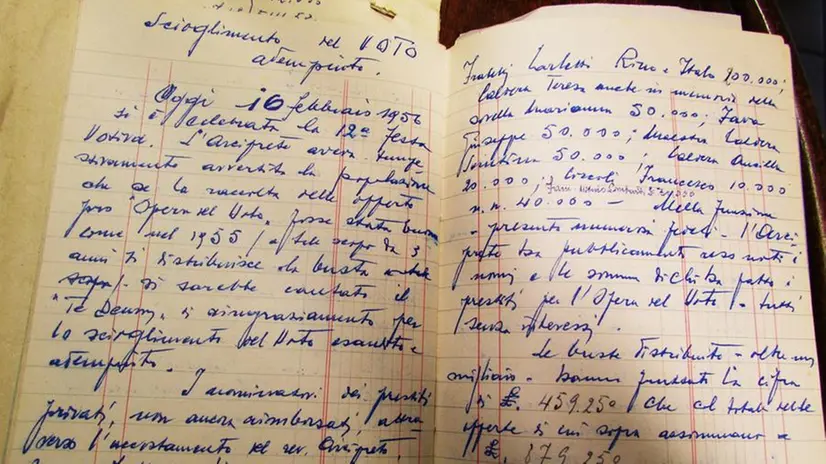 Scioglimento del VOTO
adempiuto.
Oggi 16 febbraio 1956
si è celebrata la 12ª Festa
Votiva. L'Arciprete aveva tempe
stivamente avvertita la popolazione
che se la raccolta delle offerte
pro "Opera del Voto" fosse stata buona
come nel 1955 / a tale scopo da 3
anni si distribuisce la busta
scopo/ si sarebbe cantato il
"Te Deum" di ringraziamento per
lo scioglimento del Voto esaudito e
adempiuto.
I nominativi dei prestiti
privati, non ancora rimborsati,
verso l'accostamento del rev. Arciprete,
Fratelli Rino e Italo 200.000;
Caldera Teresa anche in memoria della
sorella Marianna 50.000; Fava
Giuseppe 50.000; Maestra Caldera
50.000; Caldera Ancilla
20.000; Francesco 10.000
n. n. 40.000 - Nella funzione
- presenti numerosi fedeli - l'Arci
prete ha pubblicamente reso noti i
nomi e le somme di chi ha fatto i
prestiti per l'Opera del Voto - tutti
senza interessi.
Le buste distribuite - oltre un
migliaio - hanno fruttato la cifra
di £. 459.250 che col totale delle
offerte di cui sopra assommano a
£. 879.250